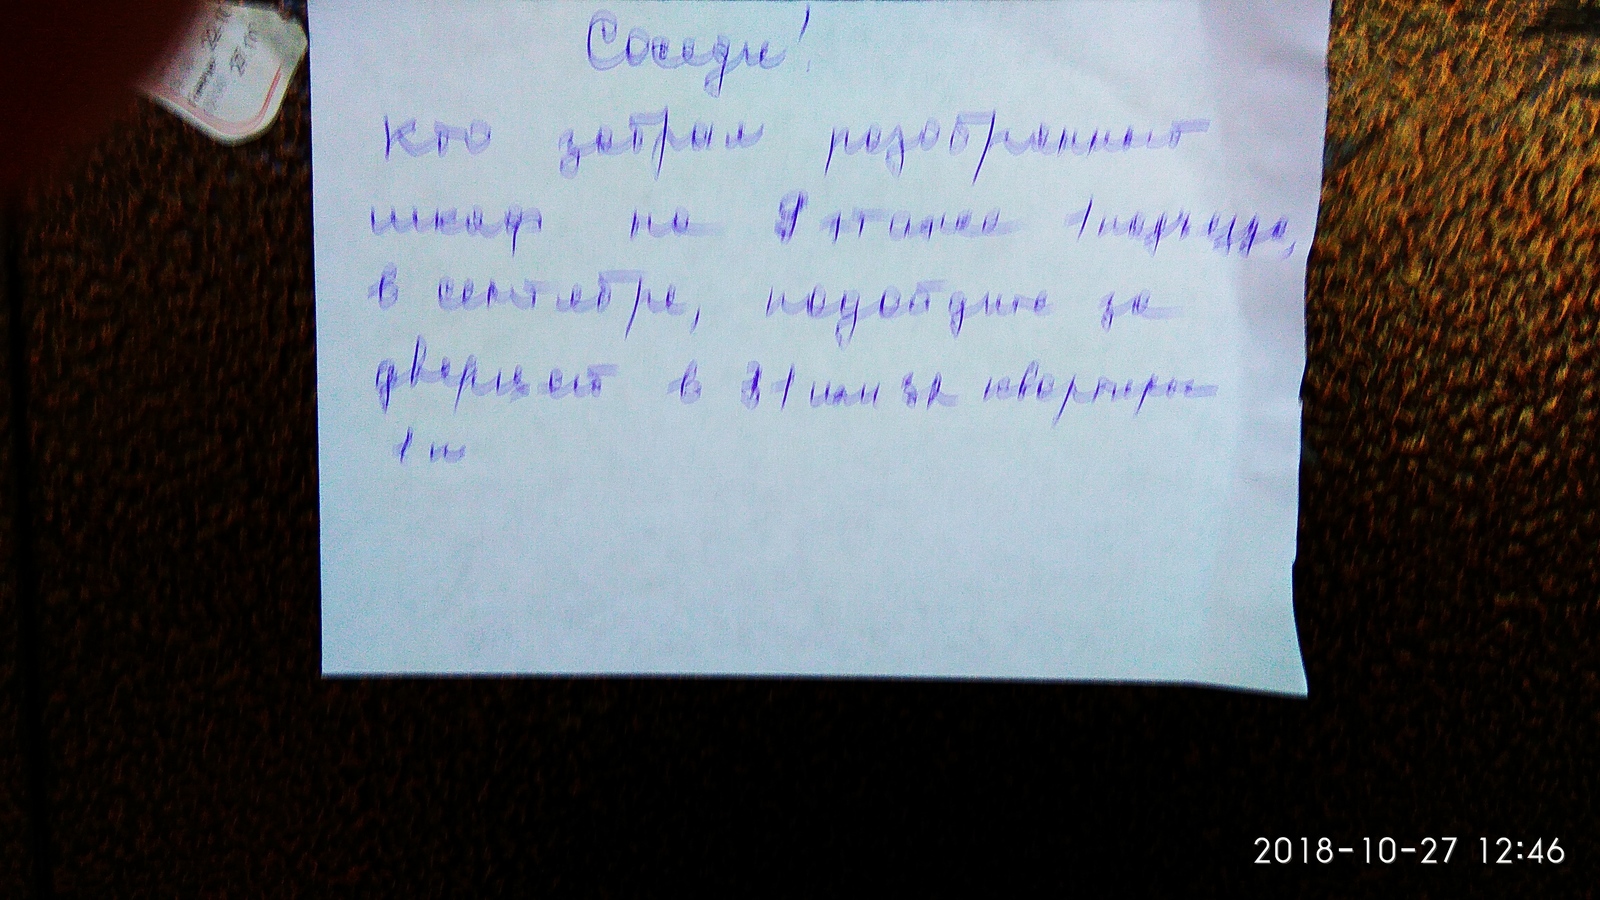 Соседи!
Кто забрал разобранный
шкаф на 9 этаже 1 подъезда,
в сентябре, подойдите за
дверцей в 31 или 32 квартиры
1 п
2018-10-27 12:46